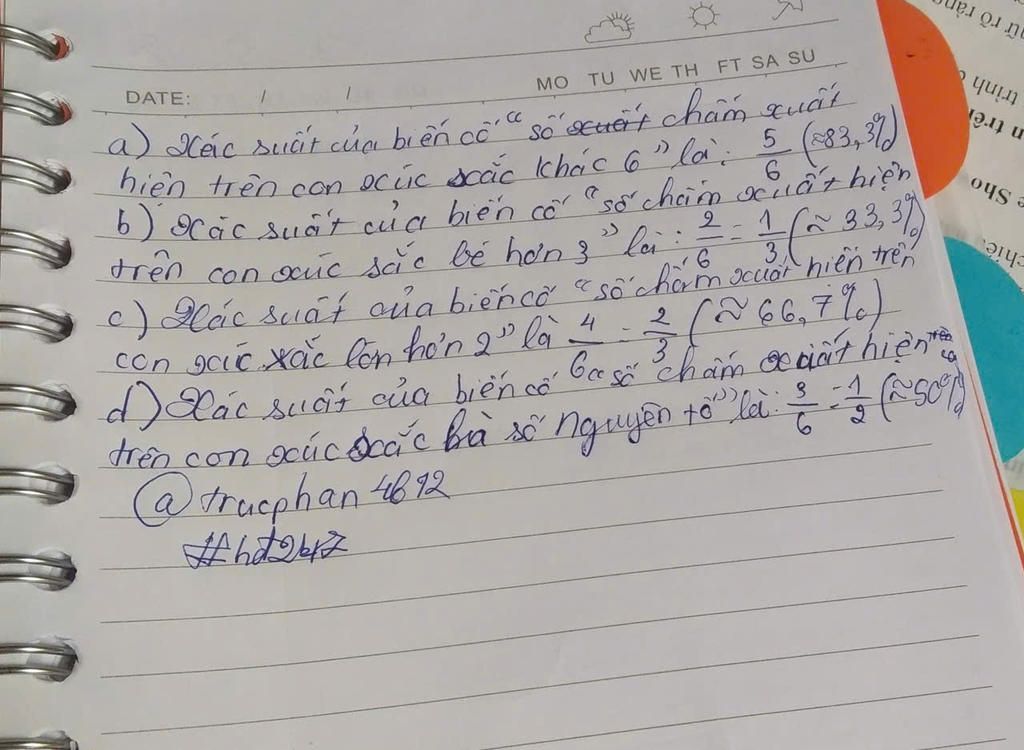 MO TU WE TH FT SA SU
DATE: / /
a) Xác suất của biến cố "số chấm xuất
hiện trên con xúc xắc khác 6" là: 5/6 (≈83,3%)
b) Xác suất của biến cố "số chấm xuất hiện
trên con xúc sắc bé hơn 3" là: 2/6 = 1/3 (≈ 33,3%)
c) Xác suất của biến cố "số chấm xuất hiện trên
con xúc xắc lớn hơn 2" là 4/6 = 2/3 (≈ 66,7%)
d) Xác suất của biến cố "số chấm xuất hiện
trên con xúc xắc là số nguyên tố" là: 3/6 = 1/2 (≈50%)
@trucphan4612
rõ ràng
trình